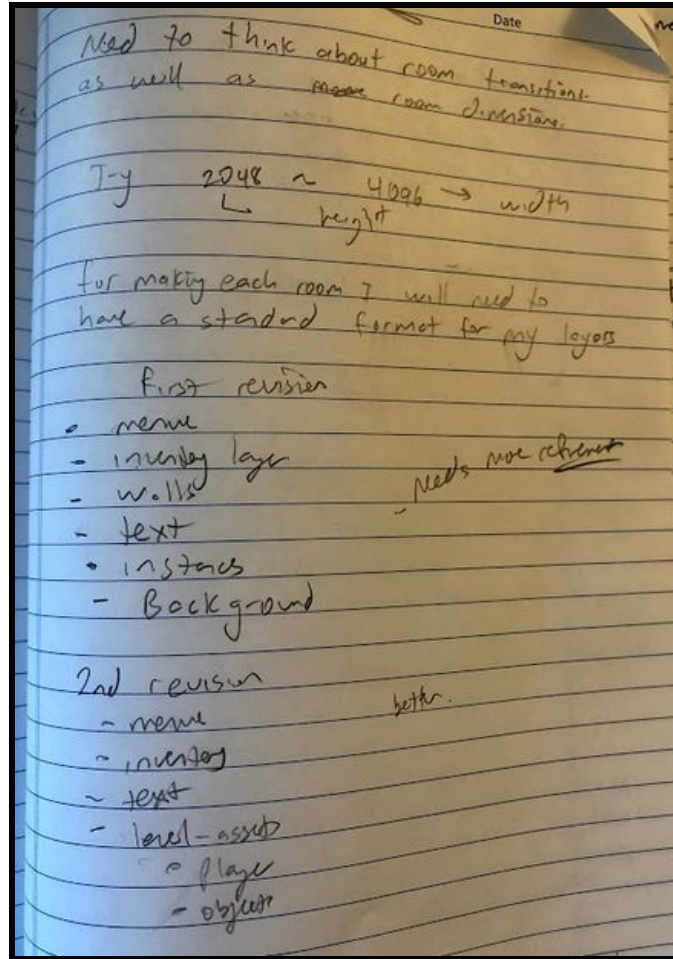 Date
Need to think about room transitions
as well as room dimensions.
2048 ~ 4096 → width
↳ height
for making each room I will need to
have a standard format for my layers
first revision
- menue
- inventory layer
- walls
- needs more
- text
- instances
- Background
2nd revision
better.
- menue
- inventory
- text
- level-assets
- player
- objects